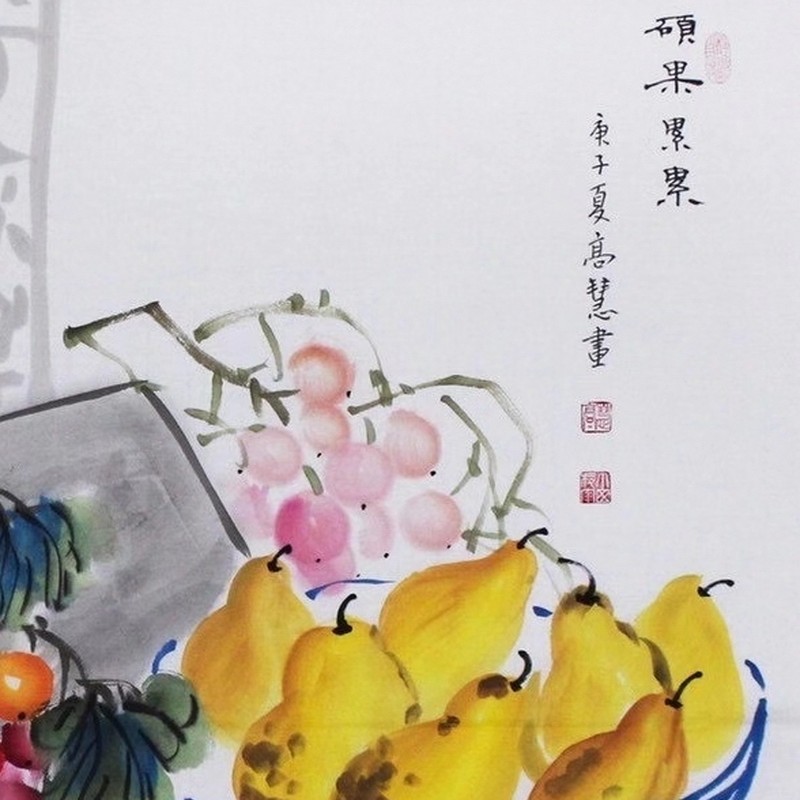 碩果累累
庚子夏高慧畫